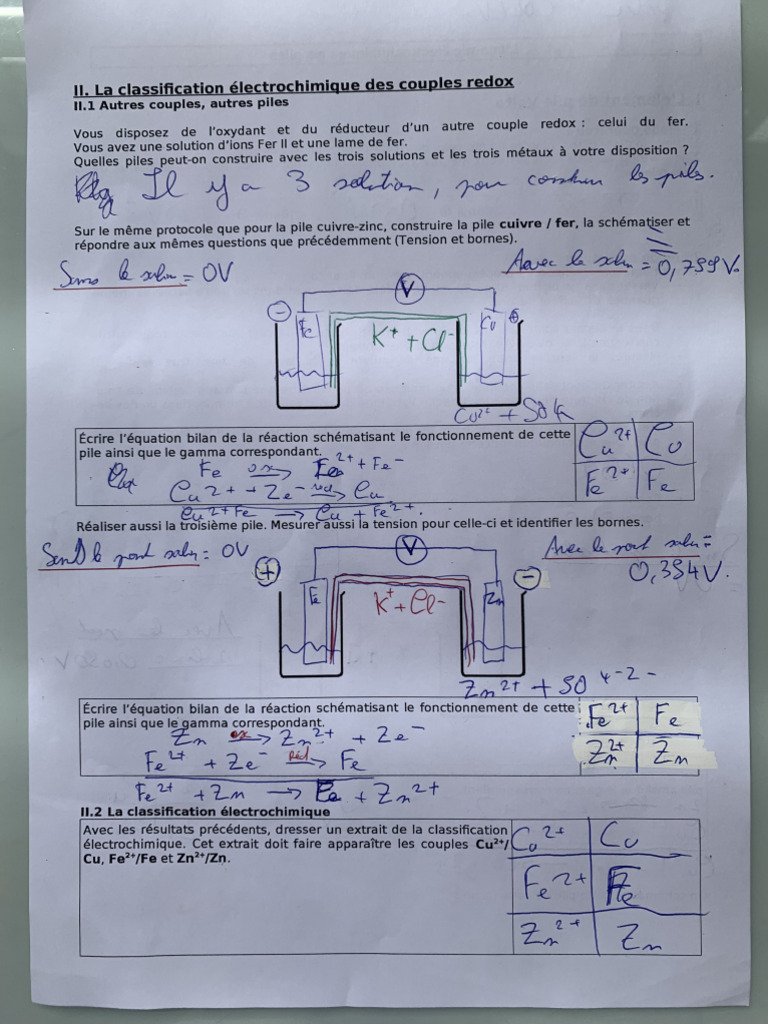 II. La classification électrochimique des couples redox
II.1 Autres couples, autres piles
Vous disposez de l'oxydant et du réducteur d'un autre couple redox : celui du fer.
Vous avez une solution d'ions Fer II et une lame de fer.
Quelles piles peut-on construire avec les trois solutions et les trois métaux à votre disposition ?
Il y a 3 solution, pour construire les piles.
Sur le même protocole que pour la pile cuivre-zinc, construire la pile cuivre / fer, la schématiser et
répondre aux mêmes questions que précédemment (Tension et bornes).
Sans le salin = 0V
Avec le salin = 0,799V.
V
- Fe Cu +
K+ + Cl-
Cu2+ + SO4
Écrire l'équation bilan de la réaction schématisant le fonctionnement de cette
pile ainsi que le gamma correspondant.
Cu2+ Cu
Fe2+ Fe
Fe ox→ Fe2+ + Fe-
Cu2+ + 2e- red→ Cu
Cu2+ Fe → Cu + Fe2+.
Réaliser aussi la troisième pile. Mesurer aussi la tension pour celle-ci et identifier les bornes.
Sans le pont salin = 0V
Avec le pont salin =
0,394V.
V
+ Fe Zn -
K+ + Cl-
Zn2+ + SO4-2-
Écrire l'équation bilan de la réaction schématisant le fonctionnement de cette
pile ainsi que le gamma correspondant.
Fe2+ Fe
Zn2+ Zn
Zn ox→ Zn2+ + 2e-
Fe2+ + 2e- Réd→ Fe
Fe2+ + Zn → Fe + Zn2+
II.2 La classification électrochimique
Avec les résultats précédents, dresser un extrait de la classification
électrochimique. Cet extrait doit faire apparaître les couples Cu2+/
Cu, Fe2+/Fe et Zn2+/Zn.
Cu2+ Cu
Fe2+ Fe
Zn2+ Zn